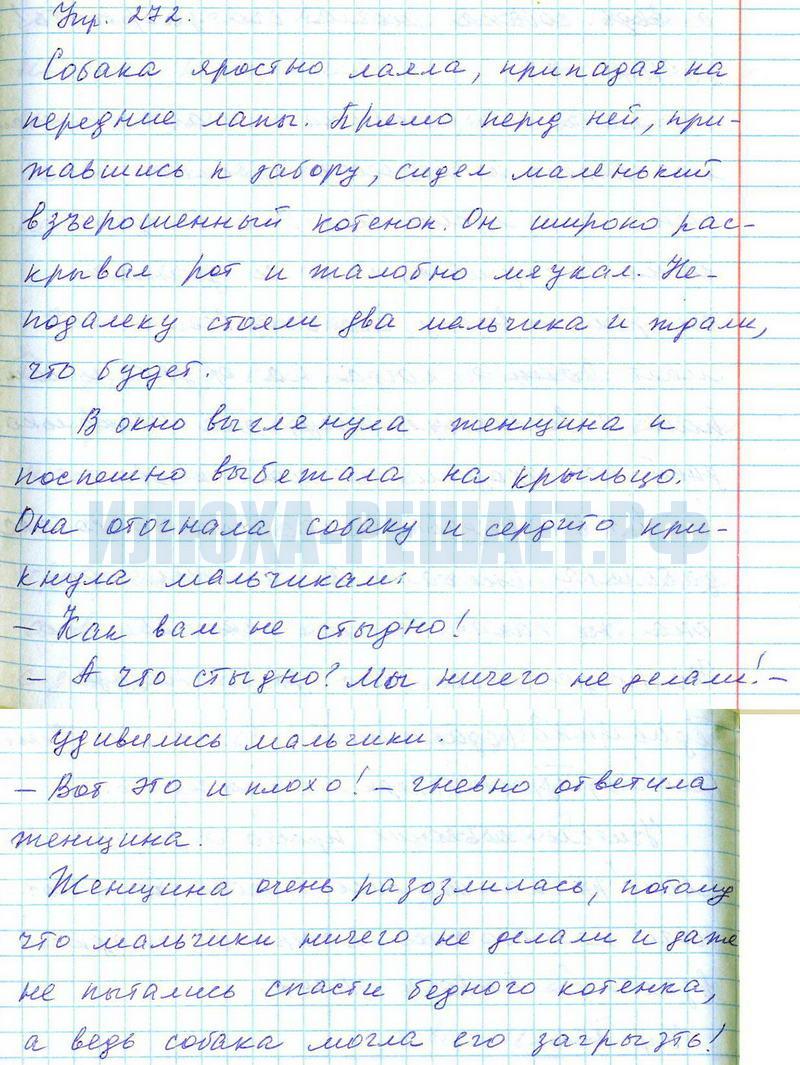 Упр. 272.
Собака яростно лаяла, припадая на
передние лапы. Прямо перед ней, при-
жавшись к забору, сидел маленький
взъерошенный котенок. Он широко рас-
крывал рот и жалобно мяукал. Не-
подалеку стояли два мальчика и ждали,
что будет.
В окно выглянула женщина и
поспешно выбежала на крыльцо.
Она отогнала собаку и сердито кри-
кнула мальчикам:
- Как вам не стыдно!
- А что стыдно? Мы ничего не делали! -
удивились мальчики.
- Вот это и плохо! - гневно ответила
женщина.
Женщина очень разозлилась, потому
что мальчики ничего не делали и даже
не пытались спасти бедного котенка,
а ведь собака могла его загрызть!
ИЛЮХА-РЕШАЕТ.РФ